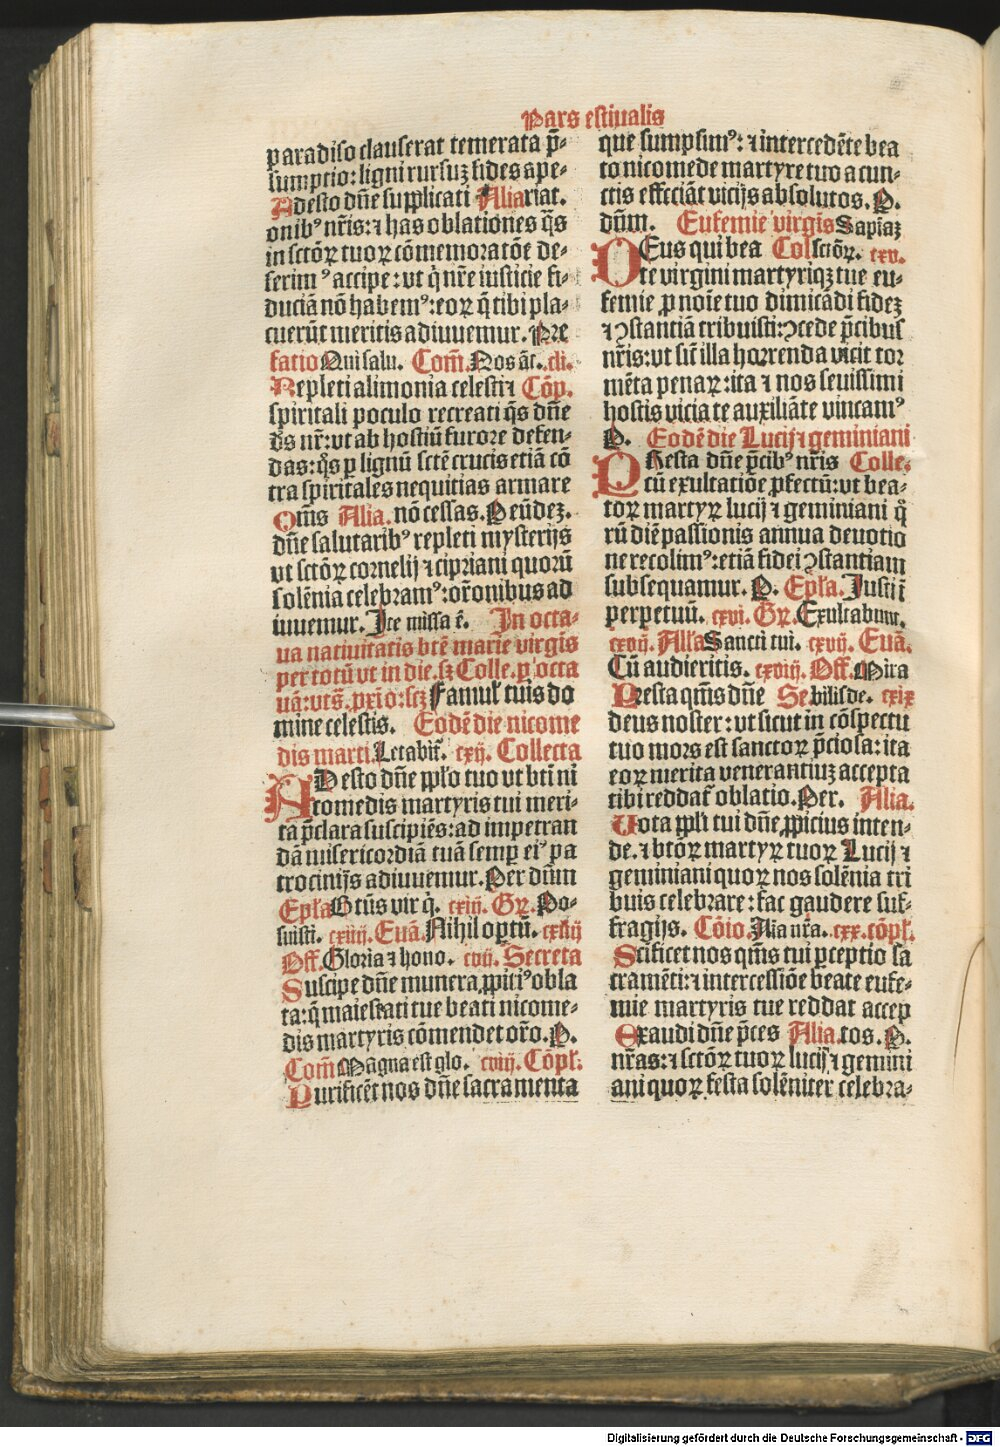 Pars estiualis
paradiso clauserat temerata p̄-
sumptio: ligni rursuꝫ fides ape-
Adesto dn̄e supplicati Alia riat.
onibꝰ nr̄is: ⁊ has oblationes q̄s
in sctōꝝ tuoꝝ cōmemoratōe de-
ferimꝰ accipe: vt q̄ nr̄e iusticie fi-
duciā nō habemꝰ: eoꝝ q̄ tibi pla-
cuerūt meritis adiuuemur. Pre
fatio Qui salu. Com̄. Nos āt. cli.
Repleti alimonia celesti ⁊ Cōp.
spiritali poculo recreati q̄s dn̄e
d̄s nr̄: vt ab hostiū furore defen-
das: q̄s ꝑ lignū sctē crucis etiā cō
tra spiritales nequitias armare
Om̄s Alia. nō cessas. P eūdeꝫ.
dn̄e salutaribꝰ repleti mysterijs
vt sctōꝝ cornelij ⁊ cipriani quorū
solēnia celebramꝰ: or̄onibus ad
iuuemur. Ite missa ē. In octa-
ua natiuitatis btē marie virgis
per totū vt in die. sꝫ Colle. ꝓ octa
uā: vts̄. pxīo: scꝫ Famul̄ tuis do
mine celestis. Eodē die nicome
dis marti. Letabit̄. cxij. Collecta
ADesto dn̄e ppl̄o tuo vt bt̄i ni
comedis martyris tui meri-
ta p̄clara suscipiēs: ad impetran
dā misericordiā tuā semꝑ eiꝰ pa
trocinijs adiuuemur. Per dūm
Epl̄a Btūs vir q̄. cxiij. Gꝝ. Po-
suisti. cxiiij. Euā. Nihil optū. cxliij
Off. Gloria ⁊ hono. cvij. Secreta
Suscipe dn̄e munera ꝓpitiꝰ obla
ta: q̄ maiestati tue beati nicome-
dis martyris cōmendet or̄o. P.
Com̄ Magna est glo. cviij. Cōpl̄.
Purificēt nos dn̄e sacramenta
que sumpsimꝰ: ⁊ intercedēte bea
to nicomede martyre tuo a cun-
ctis efficiāt vicijs absolutos. P.
dūm. Eufemie virgīs Sapiaꝫ
DEus qui bea Col sctōꝝ. cxv.
te virgini martyriqꝫ tue eu-
femie ꝓ noīe tuo dimicādi fideꝫ
⁊ ꝯstantiā tribuisti: ꝯcede p̄cibus
nr̄is: vt sic̄ illa horrenda vicit tor
mēta penaꝝ: ita ⁊ nos seuissimi
hostis vicia te auxiliāte vincamꝰ
P. Eodē die Lucij ⁊ geminiani
PResta dn̄e p̄cibꝰ nr̄is Colle.
cū exultatiōe ꝓfectū: vt bea-
toꝝ martyꝝ lucij ⁊ geminiani qͦ
rū die passionis annua deuotio
ne recolimꝰ: etiā fidei ꝯstantiam
subsequamur. P. Epl̄a. Justi ī
perpetuū. cxvi. Gꝝ. Exultabunt.
cxvij. All̄a Sancti tui. cxvij. Euā.
Cū audieritis. cxviij. Off. Mira
Presta qm̄s dn̄e Se bilis de. cxix
deus noster: vt sicut in cōspectu
tuo mors est sanctoꝝ p̄ciosa: ita
eoꝝ merita venerantiuꝫ accepta
tibi reddat̄ oblatio. Per. Alia.
Uota ppl̄i tui dn̄e ꝓpicius inten-
de. ⁊ btōꝝ martyꝝ tuoꝝ Lucij ⁊
geminiani quoꝝ nos solēnia tri
buis celebrare: fac gaudere suf-
fragijs. Cōio. Alia nr̄a. cxx. cōpl̄.
Scificet nos qm̄s tui ꝑceptio sa
cramēti: ⁊ intercessiōe beate eufe-
mie martyris tue reddat accep
Exaudi dn̄e p̄ces Alia. tos. P.
nr̄as: ⁊ sctōꝝ tuoꝝ lucij ⁊ gemini
ani quoꝝ festa solēniter celebra-
Digitalisierung gefördert durch die Deutsche Forschungsgemeinschaft - DFG